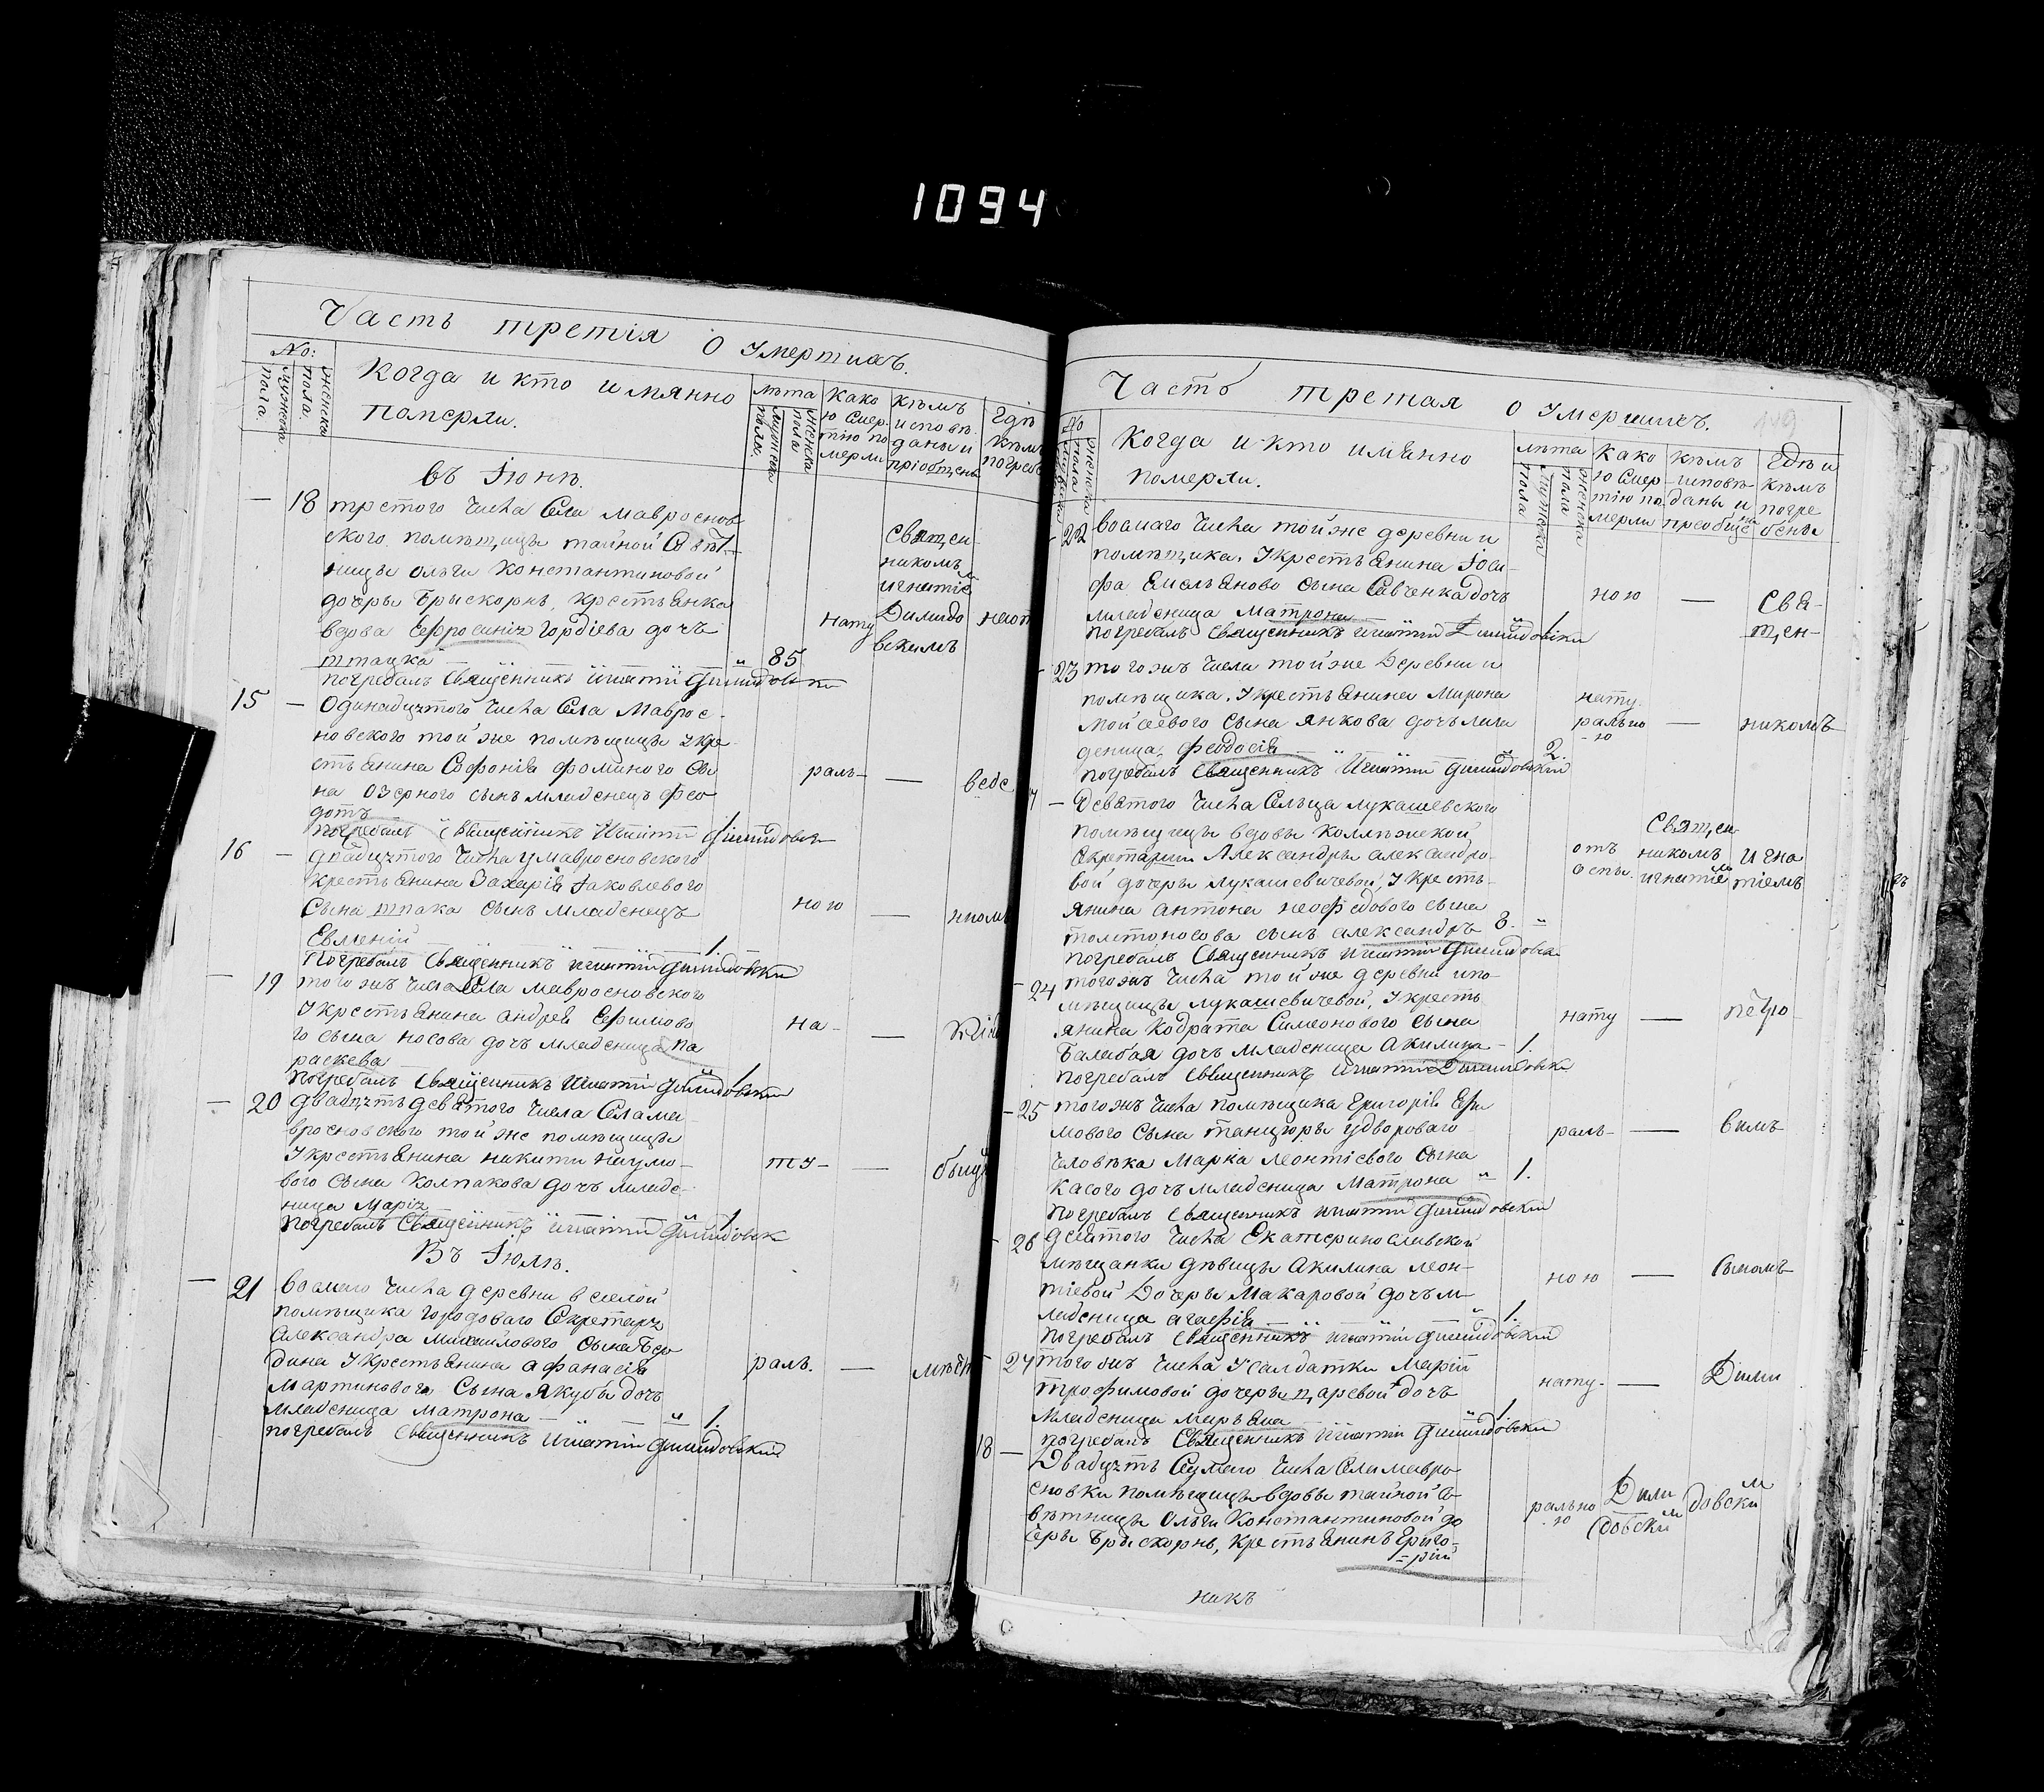 1094
Часть третія О Умертихъ.
No:
мужеска пола.
женска пола.
Когда и кто имянно
померли.
лѣта
мужеска пола.
женска пола
Како
ю Смер
тію по
мерли
кѣмъ
исповѣ
даны и
пріобщены
Гдѣ
кѣмъ
погреб
въ Іюнѣ.
— 18 третого числа Села Мавроснов
ского помѣщицы тайной Совѣт
ницы Ольги Константиновой
дочеры Брыскорнь, крестьянка
вдова Ефросинія Гордіева дочь
85
погребалъ Священникъ Игнатій Димидовскій
нату
Священ
никомъ
игнатіем
Димидо
вскимъ
15 — Одинадцатого числа Села Маврос
новского той же помѣщицы у кре
стьянина Софонія Фоминого Сы
на Озерного сынъ младенецъ Фео
дотъ
погребалъ Священникъ Игнатій Димидовск
раль — —
16 — двадцатого числа у Мавросновского
крестьянина Захарія Іаковлевого
Сына сынъ младенецъ
Евменій 1.
Погребалъ Священникъ Игнатій Димидовскій
ною —
— 19 того жъ числа Села Мавросновского
у крестьянина Андрея Ефимово
го сына Носова дочь младеница Па
раскева 1
погребалъ Священникъ Игнатій Димидовскій
на- —
— 20 двадцать девятого числа Села Ма
вросновского той же помѣщицы
у крестьянина Никити Наумо
вого сына Колпакова дочь младе
ница Марія 1
погребалъ Священникъ Игнатій Димидовск
ту- —
Въ Іюлѣ.
— 21 восмаго числа деревни Веселой
помѣщика городоваго Секретаря
Александра Михаилового сына
у крестьянина Афанасія
Мартинового Сына Якубы дочь
младеница Матрона " 1.
погребалъ Священникъ Игнатій Димидовскій
раль. —
Часть третая О Умершихъ.
119
No
мужеска пола
женска
Когда и кто имянно
померли.
лѣта
мужеска пола
женска пола
Како
ю Смер
тію по
мерли
кѣмъ
исповѣ
даны и
преобщены
Гдѣ и
кѣмъ
погре
бены
- 22 восмаго числа той же деревни и
помѣщика. У крестьянина Іоси
фа Емельяново сына Савченка дочь
младеница Матрона " 1
погребалъ Священникъ Игнатій Димидовскій
ною — Свя-
щен-
- 23 того жъ числа той же деревни и
помѣщика. У крестьянина Мирона
Мойсеевого сына Янкова дочь мла
деница Феодосія " 2.
погребалъ Священникъ Игнатій Димидовскій
нату-
рально
-ю — никомъ
— Девятого числа Сельца Лукашевского
помѣщицы вдовы коллежской
Секретарши Александры Александро
вой дочеры Лукашевичевой, У кресть
янина Антона Неофедового сына
Толтоносова сынъ Александръ 8. "
погребалъ Священникъ Игнатій Димидовск
отъ
оспы.
Священ
никомъ
игнатіем
Игна
тіемъ
- 24 того жъ числа той же деревни и по
мѣщицы Лукашевичевой, У кресть
янина Кодрата Симеонового сына
Балабая дочь младеница Акилина - 1.
погребалъ Священникъ Игнатій Димидовскі
нату — петро
- 25 того жъ числа помѣщика Григорія Ефи
мового Сына Танцюры у двороваго
человѣка Марка Леонтіевого Сына
Касого дочь младеница Матрона " 1.
погребалъ Священникъ Игнатій Димидовскій
раль- — вимъ
- 26 десятого числа Екатеринославской
мѣщанки дѣвицы Акилина Леон-
тіевой Дочеры Макаровой дочь м
ладеница Агафія " 1.
погребалъ Священникъ Игнатій Димидовскій
ною — Сыномъ
27 того жъ числа У Салдатки Марій
Трофимовой дочеры Царевой дочь
младеница Марьяна " 1
погребалъ Священникъ Игнатій Димидовскій
нату- — Дими
18 — Двадцать Седмаго числа Села Мавро
сновки помѣщицы вдовы тайной Со
вѣтницы Ольги Константиновой до
черы Брыскорнь, крестьянинъ Григо-
=рій
рально
-ю
Дими
довским
довским
никъ